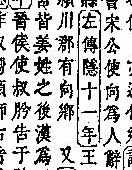 宋公使向人辭
左傳隱十一年王
川郡有向鄉 又
皆姜姓之後漢為
晉侯使叔肸告于